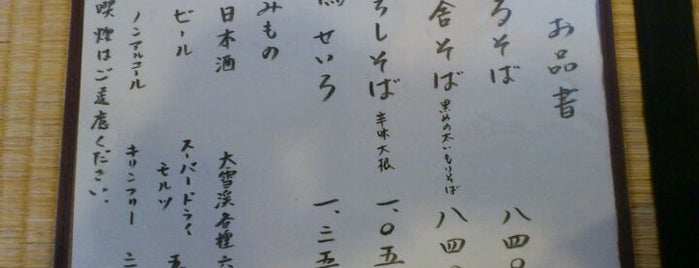 お品書
るそば 八四〇
舎そば 黒めの太いもりそば 八四〇
ろしそば 辛味大根 一、〇五
せいろ 一、二五
みもの
日本酒 大雪渓各種 六
ビール スーパードライ モルツ 五
ノンアルコール キリンフリー 三
喫煙はご遠慮ください。